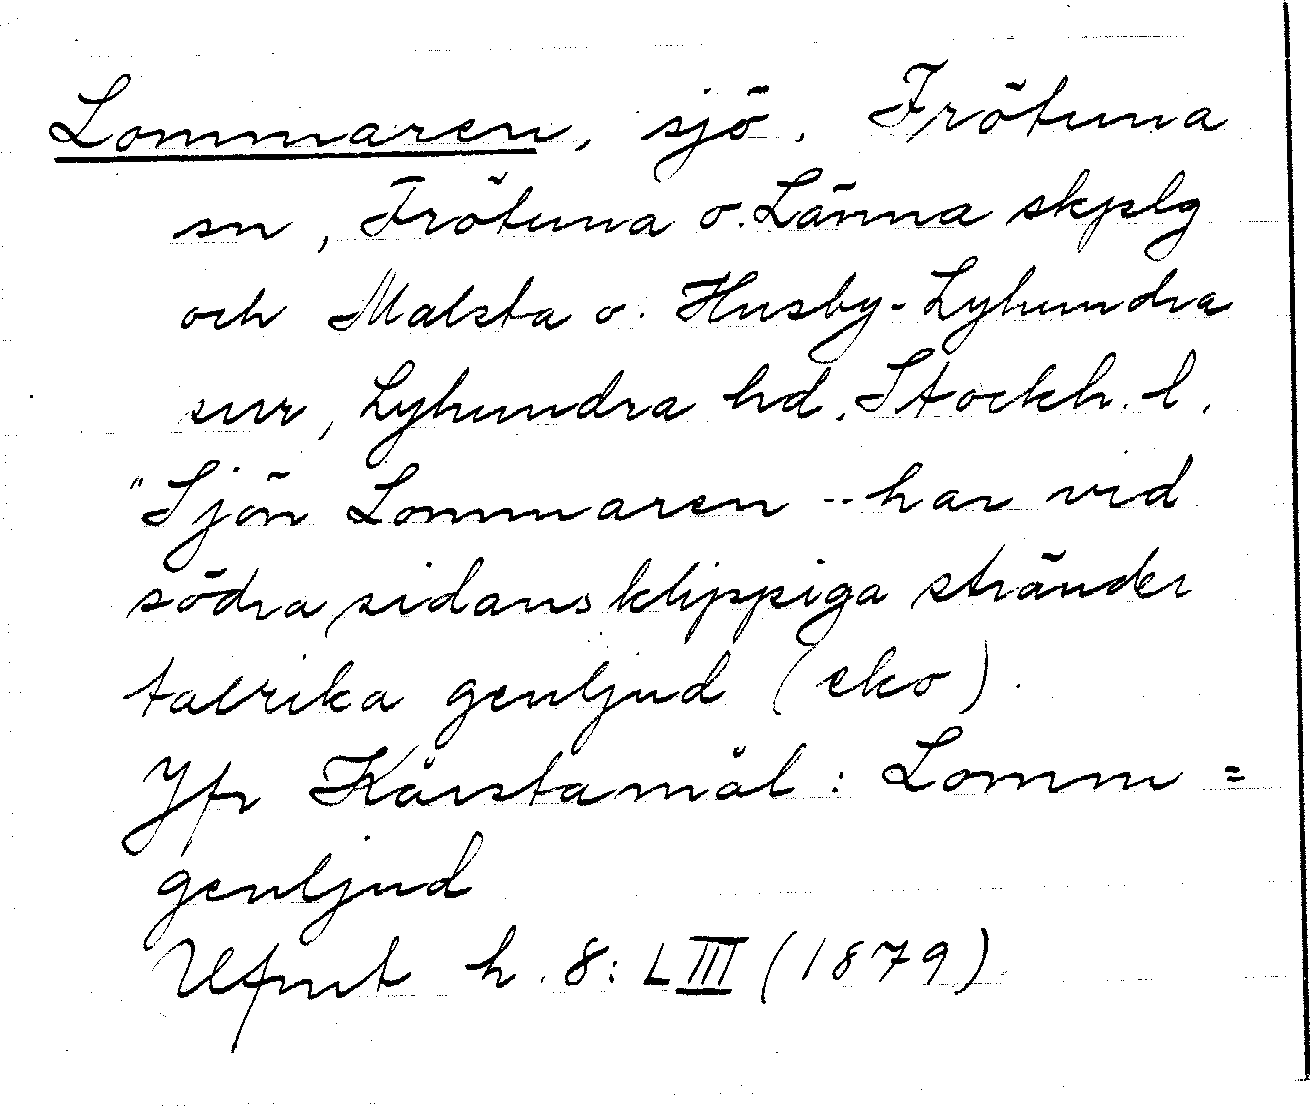 Lommaren, sjö, Frötuna
sn, Frötuna o. Länna skplg
och Malsta o. Husby-Lyhundra
snr, Lyhundra hd, Stockh. l.
"Sjön Lommaren -- har vid
södra sidans klippiga stränder
talrika genljud (eko).
Jfr Kärstamål: Lomm=
genljud
Ufmt h. 8: LIII (1879)